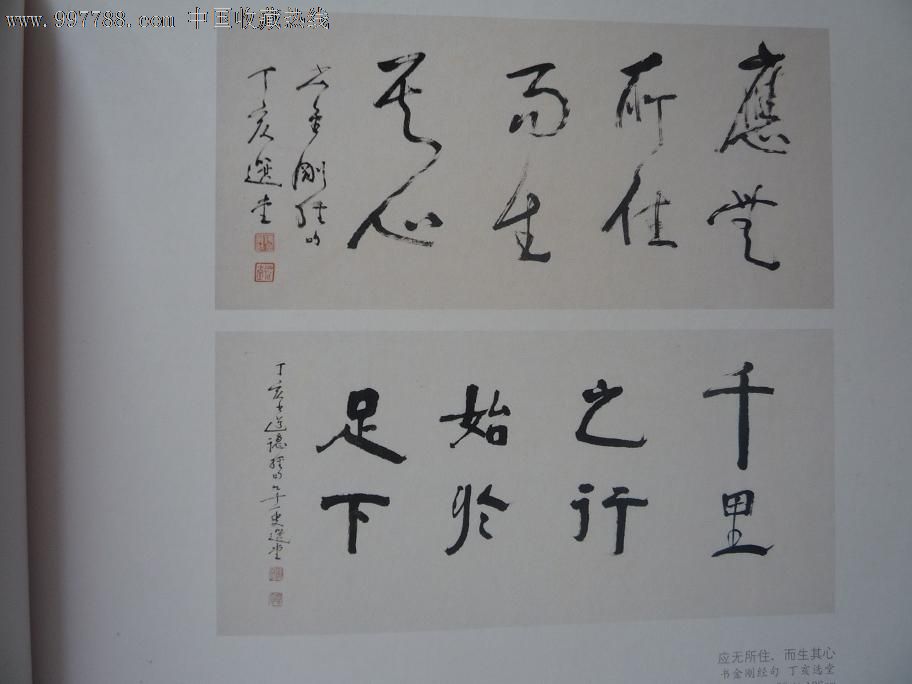 www.997788.com 中国收藏热线
應無
所住
而生
其心
书金剛經句
丁亥選堂
千里
之行
始於
足下
丁亥书道德經句九十一叟選堂
应无所住，而生其心
书金刚经句 丁亥选堂